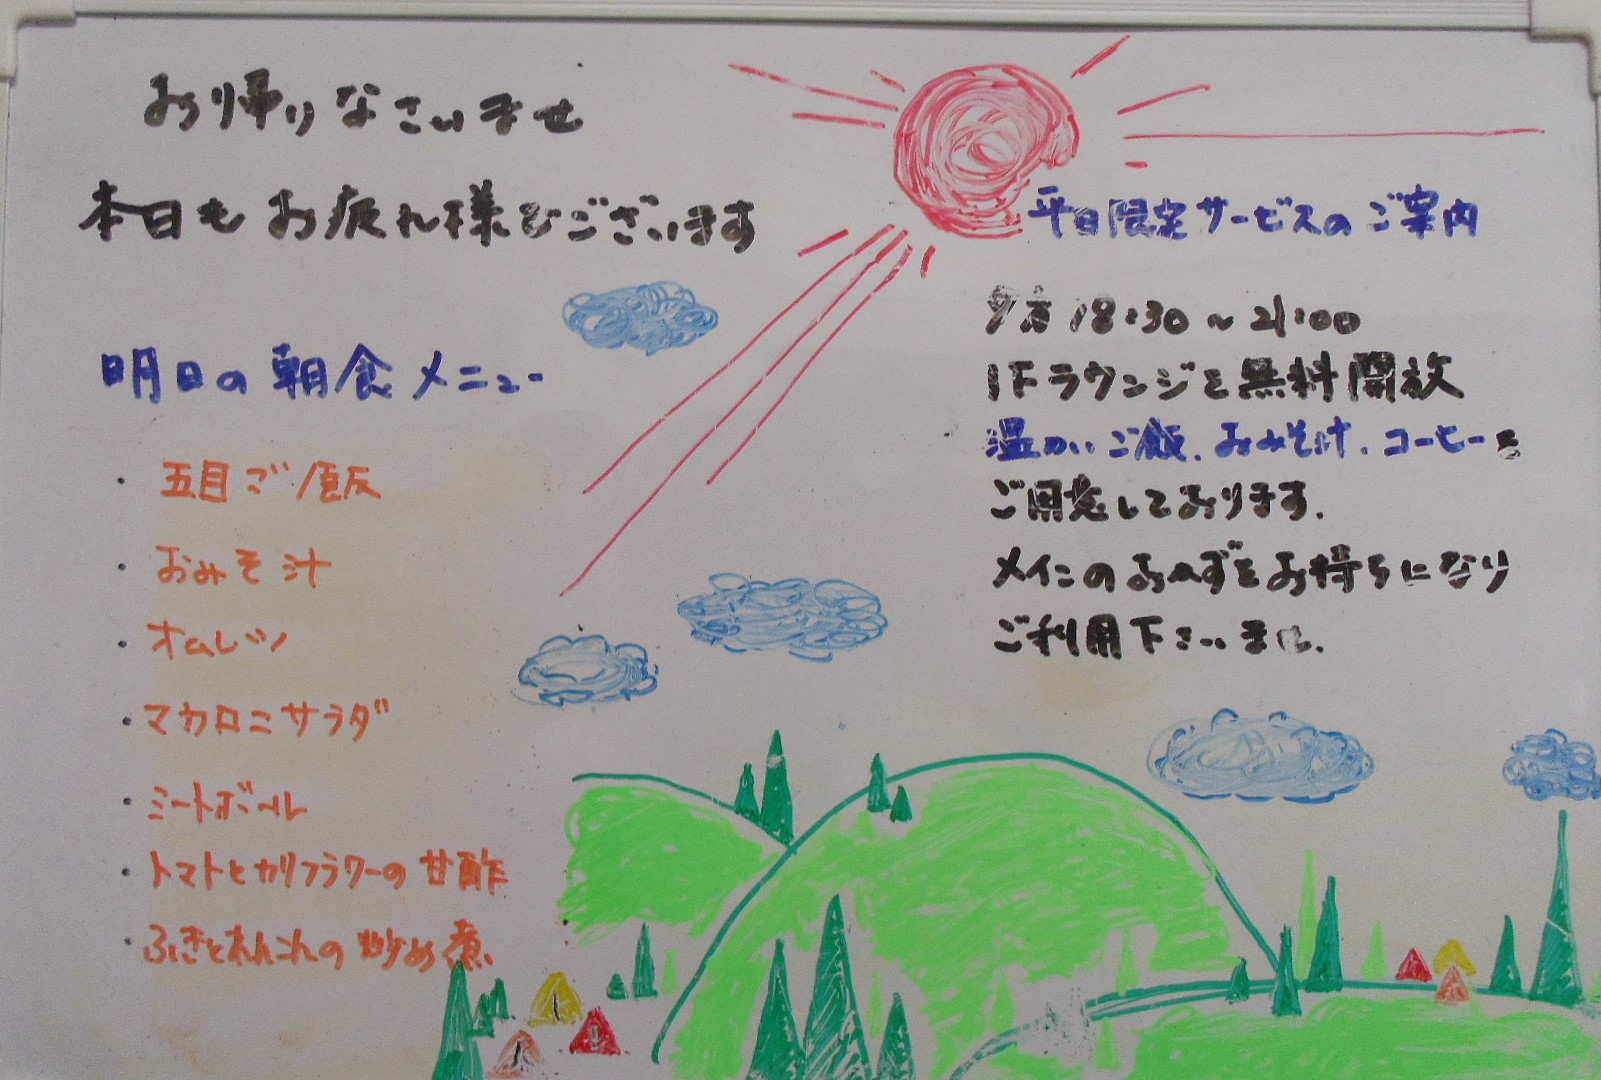 お帰りなさいませ
本日もお疲れ様でございます
明日の朝食メニュー
・五目ご飯
・おみそ汁
・オムレツ
・マカロニサラダ
・ミートボール
・トマトとカリフラワーの甘酢
・ふきとれんこんの炒め煮
平日限定サービスのご案内
夕方18:30~21:00
1Fラウンジを無料開放
温かいご飯、おみそ汁、コーヒーを
ご用意しております。
メインのおかずをお持ちになり
ご利用下さいませ。